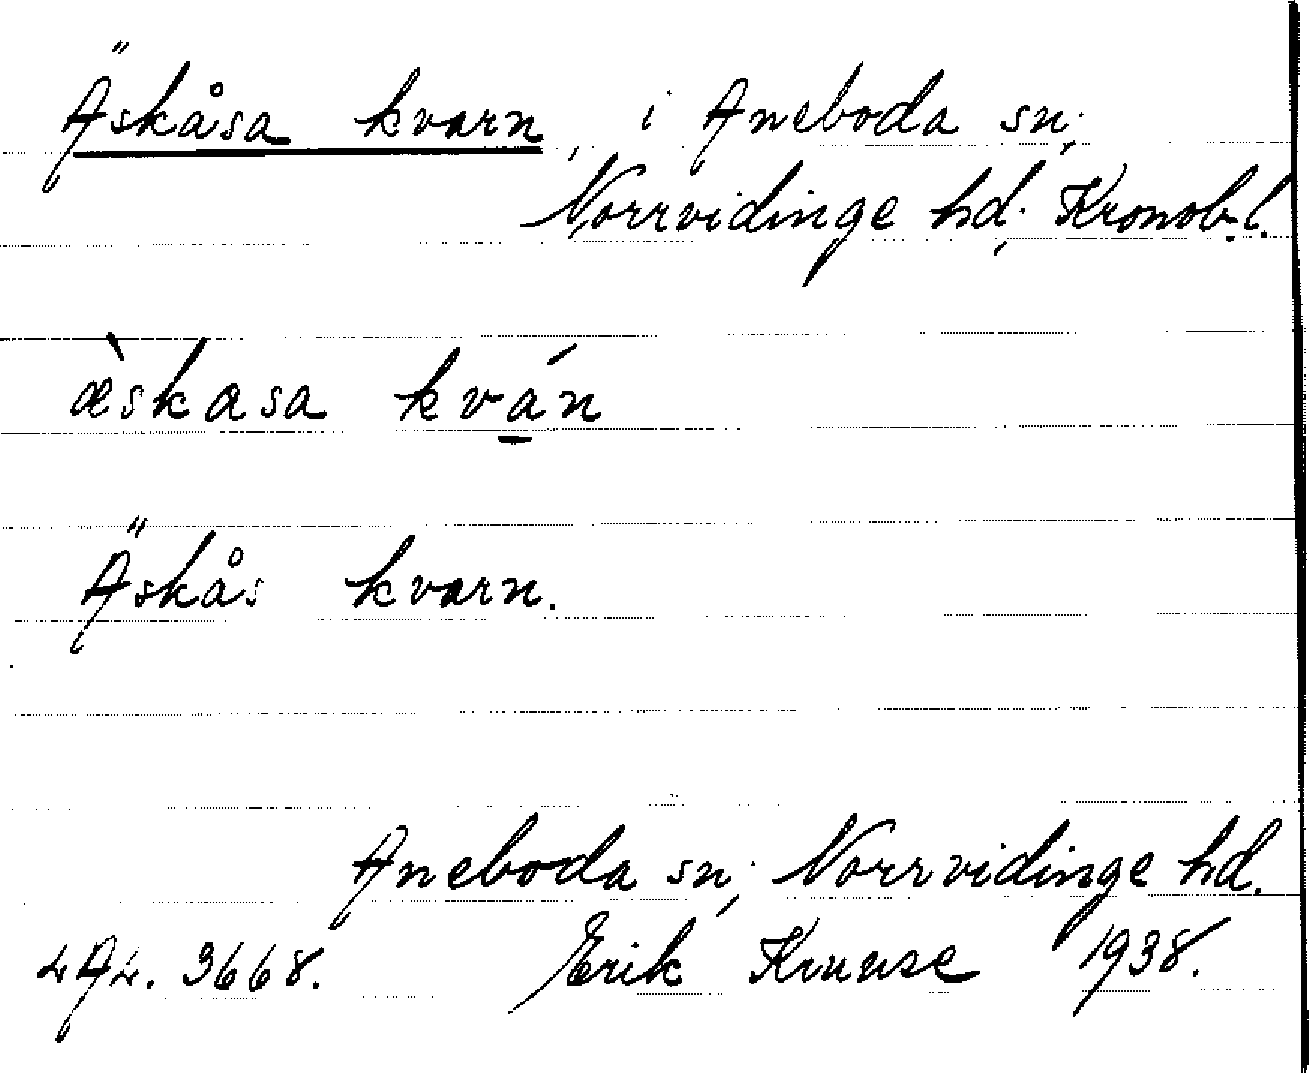 Äskåsa kvarn, i Aneboda sn,
Norrvidinge hd, Kronob. l.
æ̀skasa kvá̱n
Äskås kvarn.
Aneboda sn, Norrvidinge hd.
4A4. 3668. Erik Kruuse 1938.